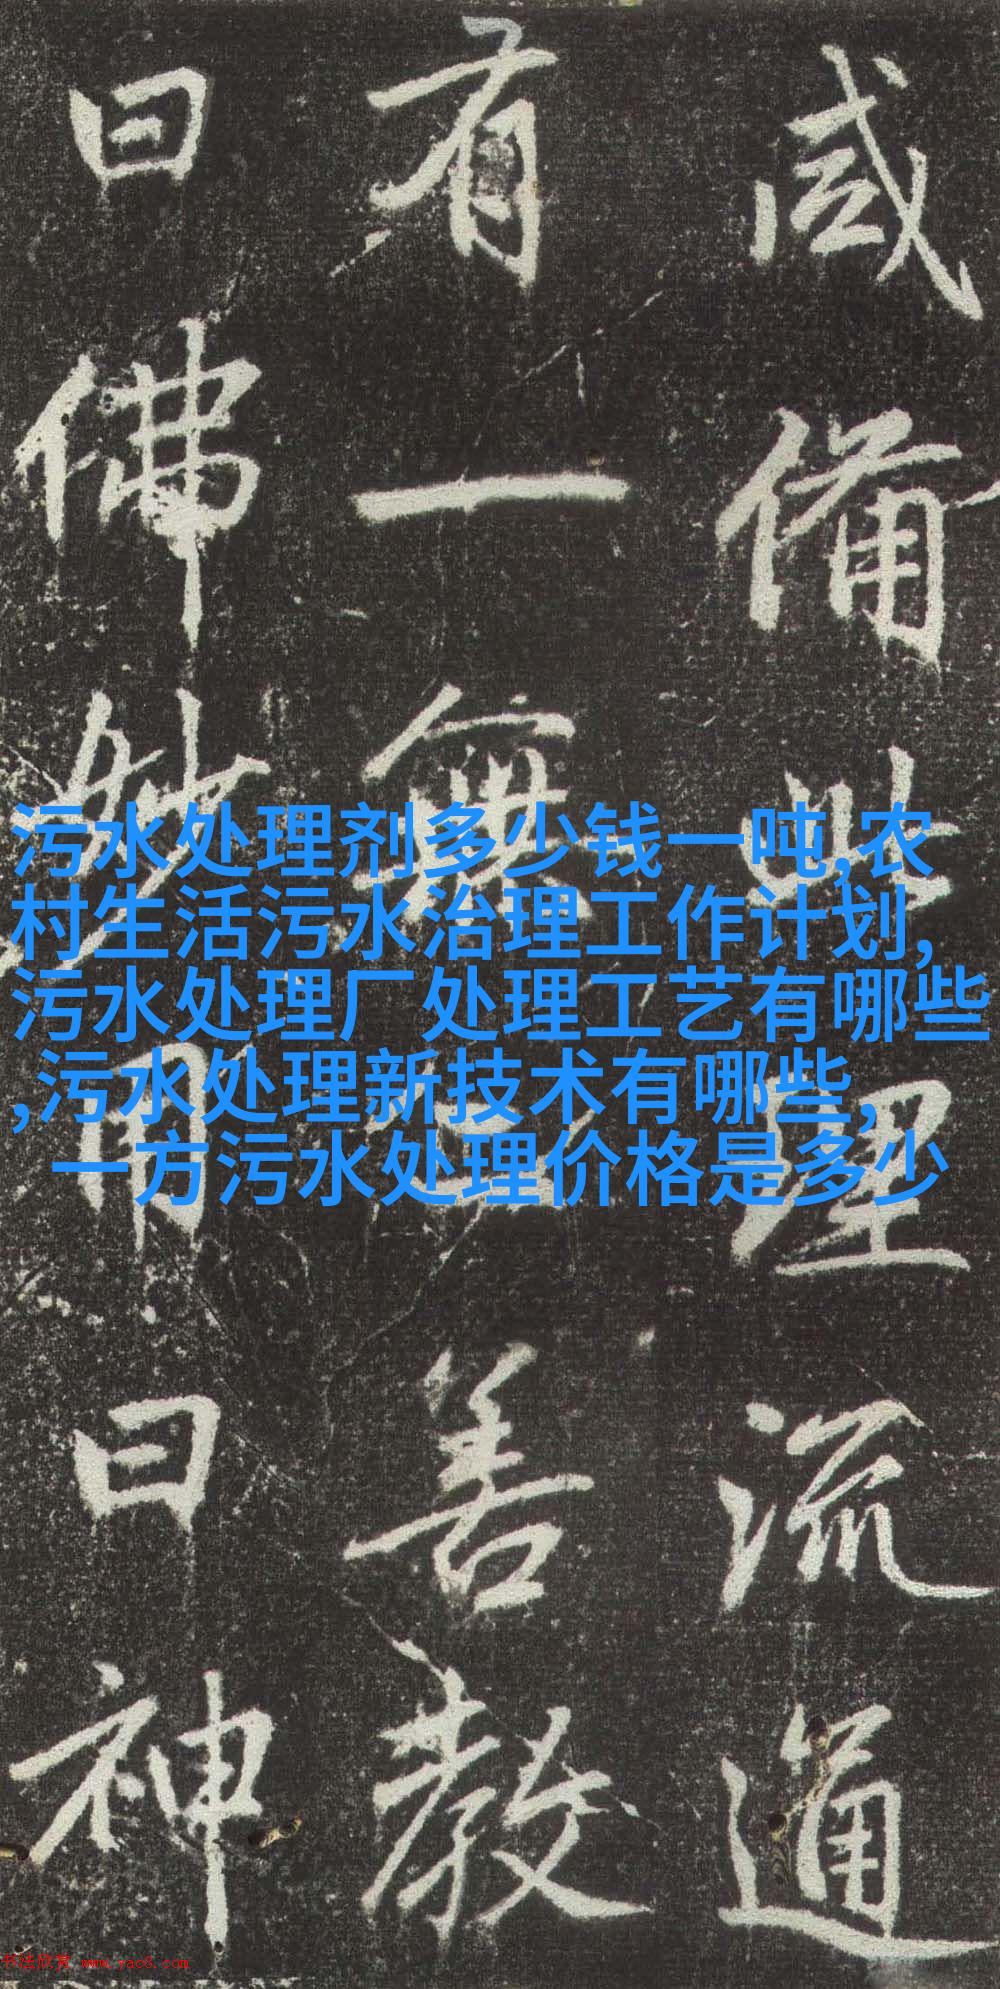 咸備此理流通
有一無善教
曰佛妙用曰神
污水处理剂多少钱一吨,农
村生活污水治理工作计划,
污水处理厂处理工艺有哪些
,污水处理新技术有哪些,
一方污水处理价格是多少
书法欣赏 www.yac8.com